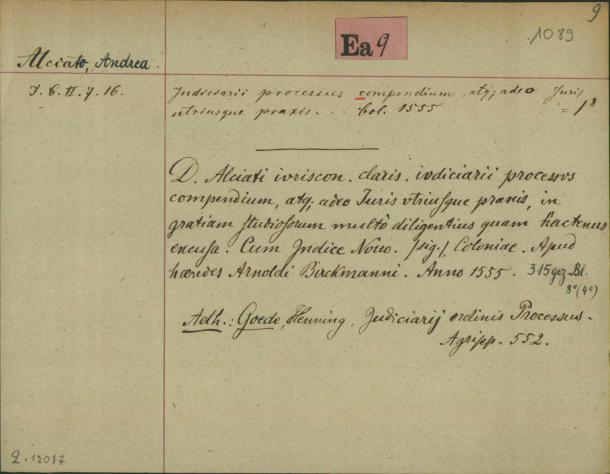 9
Ea 9
1089
Alciato, Andrea.
J. 6. II. 7. 16.
Judiciarii processus compendium, atq; adeo Juris
utriusque praxis... Col. 1555 = 18
D. Alciati iuriscon. claris. iudiciarii processus
compendium, atq; adeo Iuris vtriusque praxis, in
gratiam studiosorum multò diligentius quam hactenus
excusa. Cum Jndice Nouo. [sig.] Coloniae. Apud
hæredes Arnoldi Birckmanni. Anno 1555. 315 gez. Bl.
8° (4°)
Adh.: Goede, Henning, Judiciarij ordinis Processus.
Agripp. 552.
2.12017